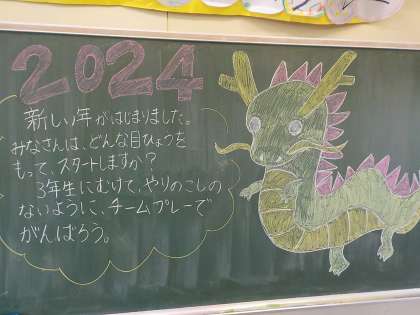 2024
新しい年がはじまりました。
みなさんは、どんな目ひょうを
もって、スタートしますか？
3年生にむけて、やりのこしの
ないように、チームプレーで
がんばろう。